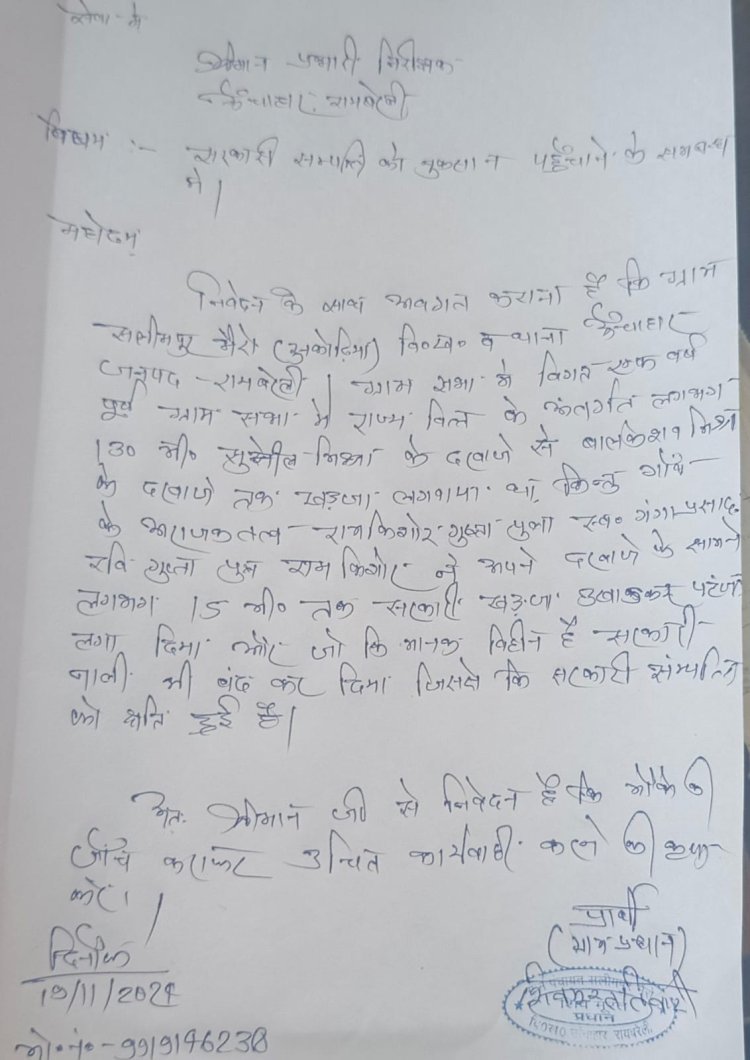 सेवा में
श्रीमान प्रभारी निरीक्षक
ऊँचाहार, रायबरेली
विषय :- सरकारी सम्पत्ति को नुकसान पहुँचाने के सम्बन्ध
में।
महोदय
निवेदन के साथ अवगत कराना है कि ग्राम
सलीमपुर भैरो (सुकोढ़िया) वि०ख० व थाना ऊँचाहार
जनपद - रायबरेली। ग्राम सभा में विगत एक वर्ष
पूर्व ग्राम सभा में राज्य वित्त के अंतर्गत लगभग
130 मी० सुशील मिश्रा के दरवाजे से बालकेशन मिश्रा
के दरवाजे तक खड़ंजा लगवाया था, किन्तु गाँव
के अराजकतत्व - रामकिशोर गुप्ता पुत्र स्व० गंगा प्रसाद
रवि गुप्ता पुत्र राम किशोर ने अपने दरवाजे के सामने
लगभग 15 मी० तक सरकारी खड़ंजा उखाड़कर पटंजा
लगा दिया और जो कि मानक विहीन है सरकारी
नाली भी बंद कर दिया जिससे कि सरकारी संम्पत्ति
को क्षति हुई है।
अतः श्रीमान जी से निवेदन है कि मौके की
जाँच कराकर उचित कार्यवाही करने की कृपा
करें।
प्रार्थी
(ग्राम प्रधान)
दिनाँक
19/11/2024
प्रधान
रायबरेली
मो०नं०-9919146238